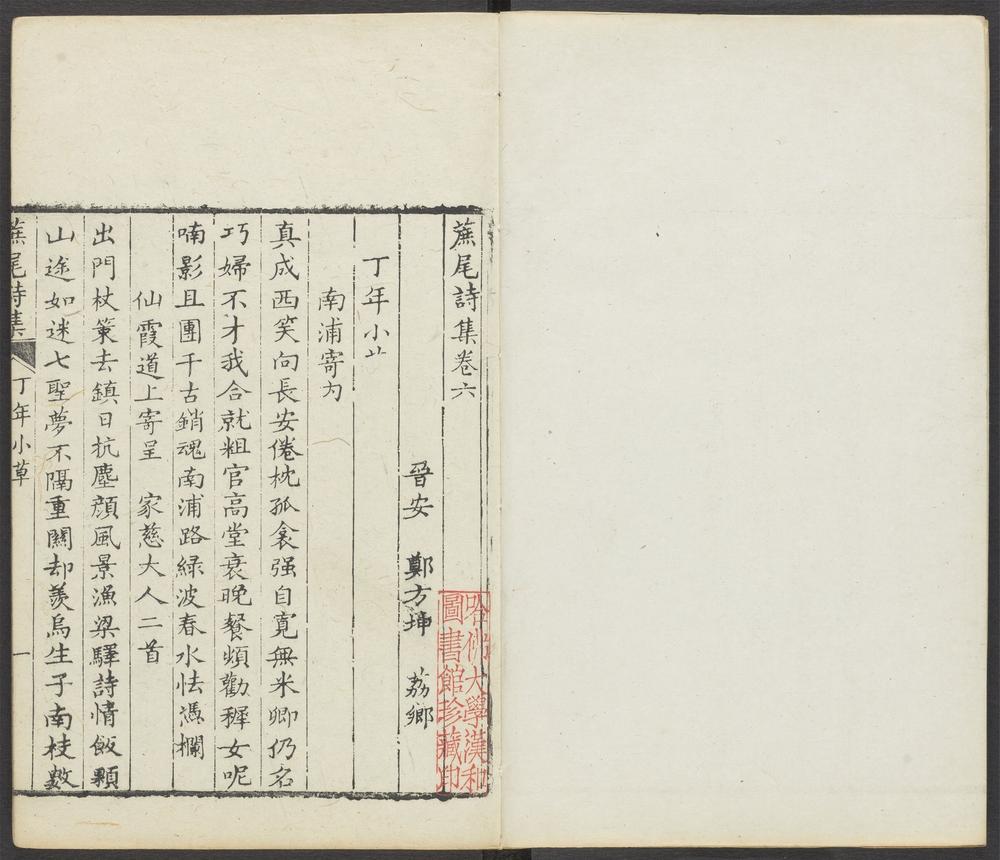 蔗尾詩集卷六
晉安　鄭方坤　荔鄉
丁年小艸
南浦寄內
真成西笑向長安倦枕孤衾强自寬無米卿仍名
巧婦不才我合就粗官高堂衰晚餐煩勸穉女呢
喃影且團千古銷魂南浦路緑波春水怯憑欄
仙霞道上寄呈　家慈大人二首
出門杖策去鎮日抗塵顔風景漁梁驛詩情飯顆
山途如迷七聖夢不隔重關却羨烏生子南枝數
蔗尾詩集
丁年小草
一
哈佛大學漢和
圖書館珍藏印